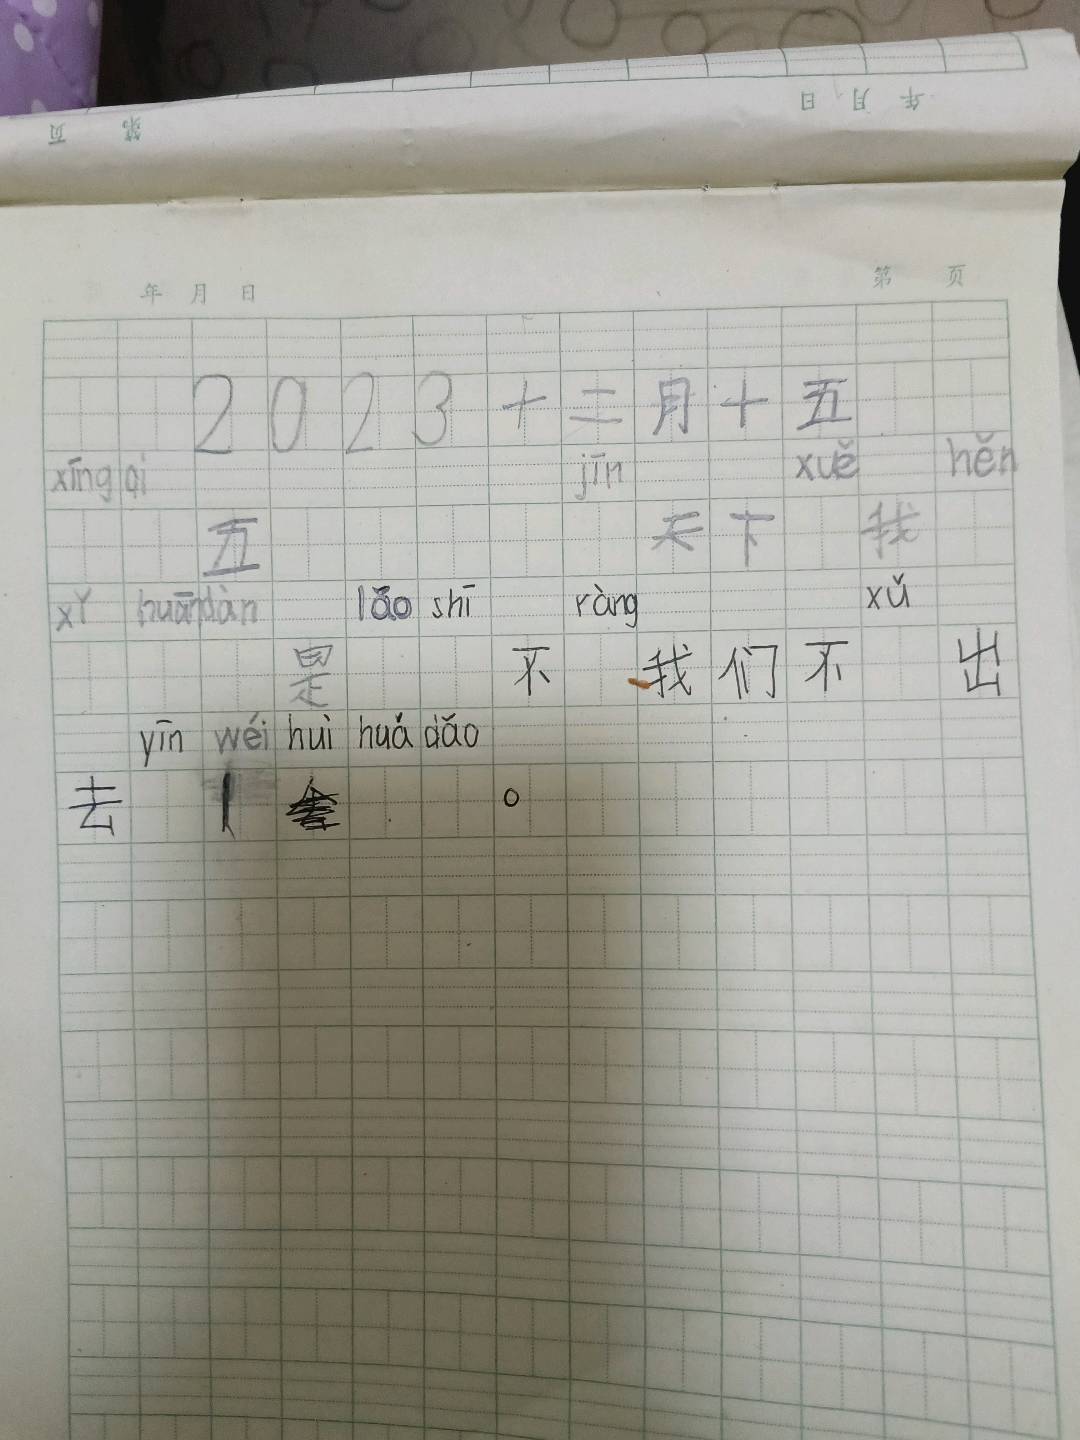 年 月 日
第 页
年 月 日 第 页
2023十二月十五
xīng qi jīn xuě hěn
五 天下 我
xǐ huān dàn lǎo shī ràng xǔ
是 不 我们不 出
yīn wéi huì huá dǎo
去 。